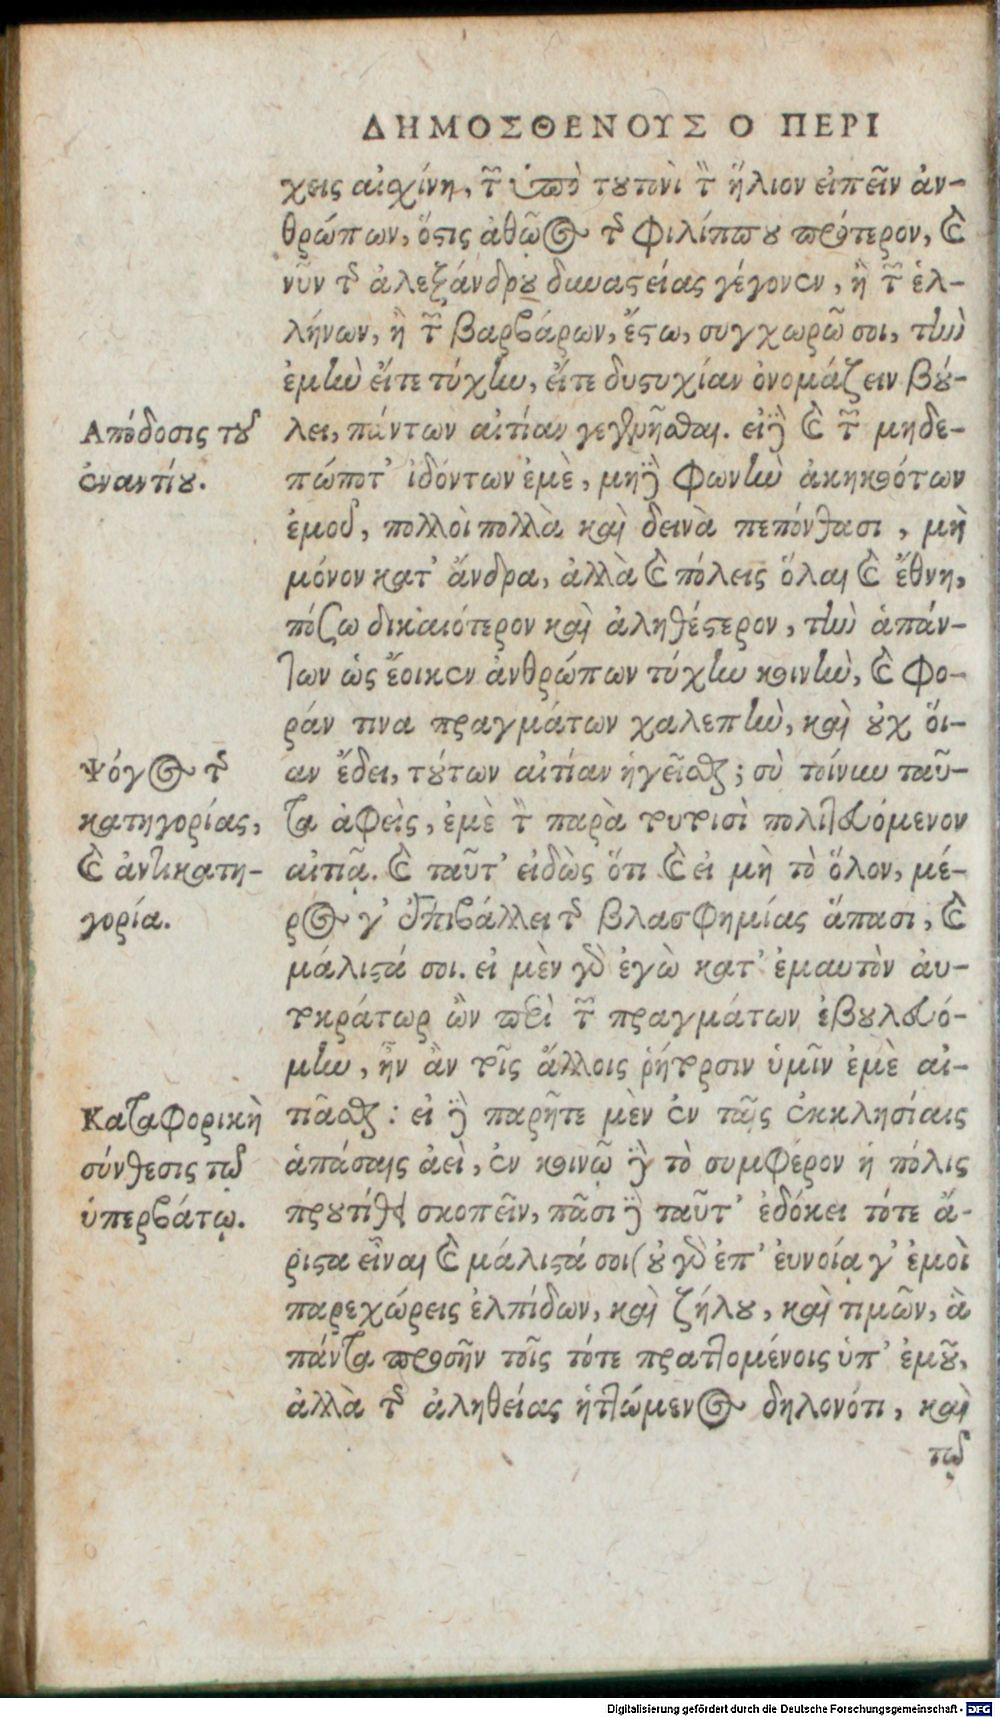 ΔΗΜΟΣΘΕΝΟΥΣ Ο ΠΕΡΙ
χεις αἰσχίνη, τῶν ὑπὸ τουτονὶ τὸν ἥλιον εἰπεῖν ἀν-
θρώπων, ὅστις ἀθῷος τῆς Φιλίππου πρότερον, καὶ
νῦν τῆς ἀλεξάνδρου δυναστείας γέγονεν, ἢ τῶν ἑλ-
λήνων, ἢ τῶν βαρβάρων, ἔστω, συγχωρῶ σοι, τὴν
ἐμὴν εἴτε τύχην, εἴτε δυστυχίαν ὀνομάζειν βού-
λει, πάντων αἰτίαν γεγενῆσθαι. εἰ δὲ καὶ τῶν μηδε-
πώποτ' ἰδόντων ἐμὲ, μηδὲ φωνὴν ἀκηκοότων
ἐμοῦ, πολλοὶ πολλὰ καὶ δεινὰ πεπόνθασι, μὴ
μόνον κατ' ἄνδρα, ἀλλὰ καὶ πόλεις ὅλαι καὶ ἔθνη,
πόσῳ δικαιότερον καὶ ἀληθέστερον, τὴν ἁπάν-
των ὡς ἔοικεν ἀνθρώπων τύχην κοινὴν, καὶ φο-
ράν τινα πραγμάτων χαλεπὴν, καὶ οὐχ οἵ-
αν ἔδει, τούτων αἰτίαν ἡγεῖσθαι; σὺ τοίνυν ταῦ-
τα ἀφεὶς, ἐμὲ τὸν παρὰ τουτοισὶ πολιτευόμενον
αἰτιᾷ. καὶ ταῦτ' εἰδὼς ὅτι καὶ εἰ μὴ τὸ ὅλον, μέ-
ρος γ' ἐπιβάλλει τῆς βλασφημίας ἅπασι, καὶ
μάλιστά σοι. εἰ μὲν γὰρ ἐγὼ κατ' ἐμαυτὸν αὐ-
τοκράτωρ ὢν περὶ τῶν πραγμάτων ἐβουλευό-
μην, ἦν ἂν τοῖς ἄλλοις ῥήτορσιν ὑμῖν ἐμὲ αἰ-
τιᾶσθαι: εἰ δὲ παρῆτε μὲν ἐν ταῖς ἐκκλησίαις
ἁπάσαις ἀεὶ, ἐν κοινῷ δὲ τὸ συμφέρον ἡ πόλις
προὐτίθει σκοπεῖν, πᾶσι δὲ ταῦτ' ἐδόκει τότε ἄ-
ριστα εἶναι καὶ μάλιστά σοι (οὐ γὰρ ἐπ' εὐνοίᾳ γ' ἐμοὶ
παρεχώρεις ἐλπίδων, καὶ ζήλου, καὶ τιμῶν, ἃ
πάντα προσῆν τοῖς τότε πραττομένοις ὑπ' ἐμοῦ,
ἀλλὰ τῆς ἀληθείας ἡττώμενος δηλονότι, καὶ
τῷ
Απόδοσις τοῦ
ἐναντίου.
Ψόγος τῆς
κατηγορίας,
καὶ ἀντικατη-
γορία.
Καταφορικὴ
σύνθεσις τῷ
ὑπερβάτῳ.
Digitalisierung gefördert durch die Deutsche Forschungsgemeinschaft - DFG